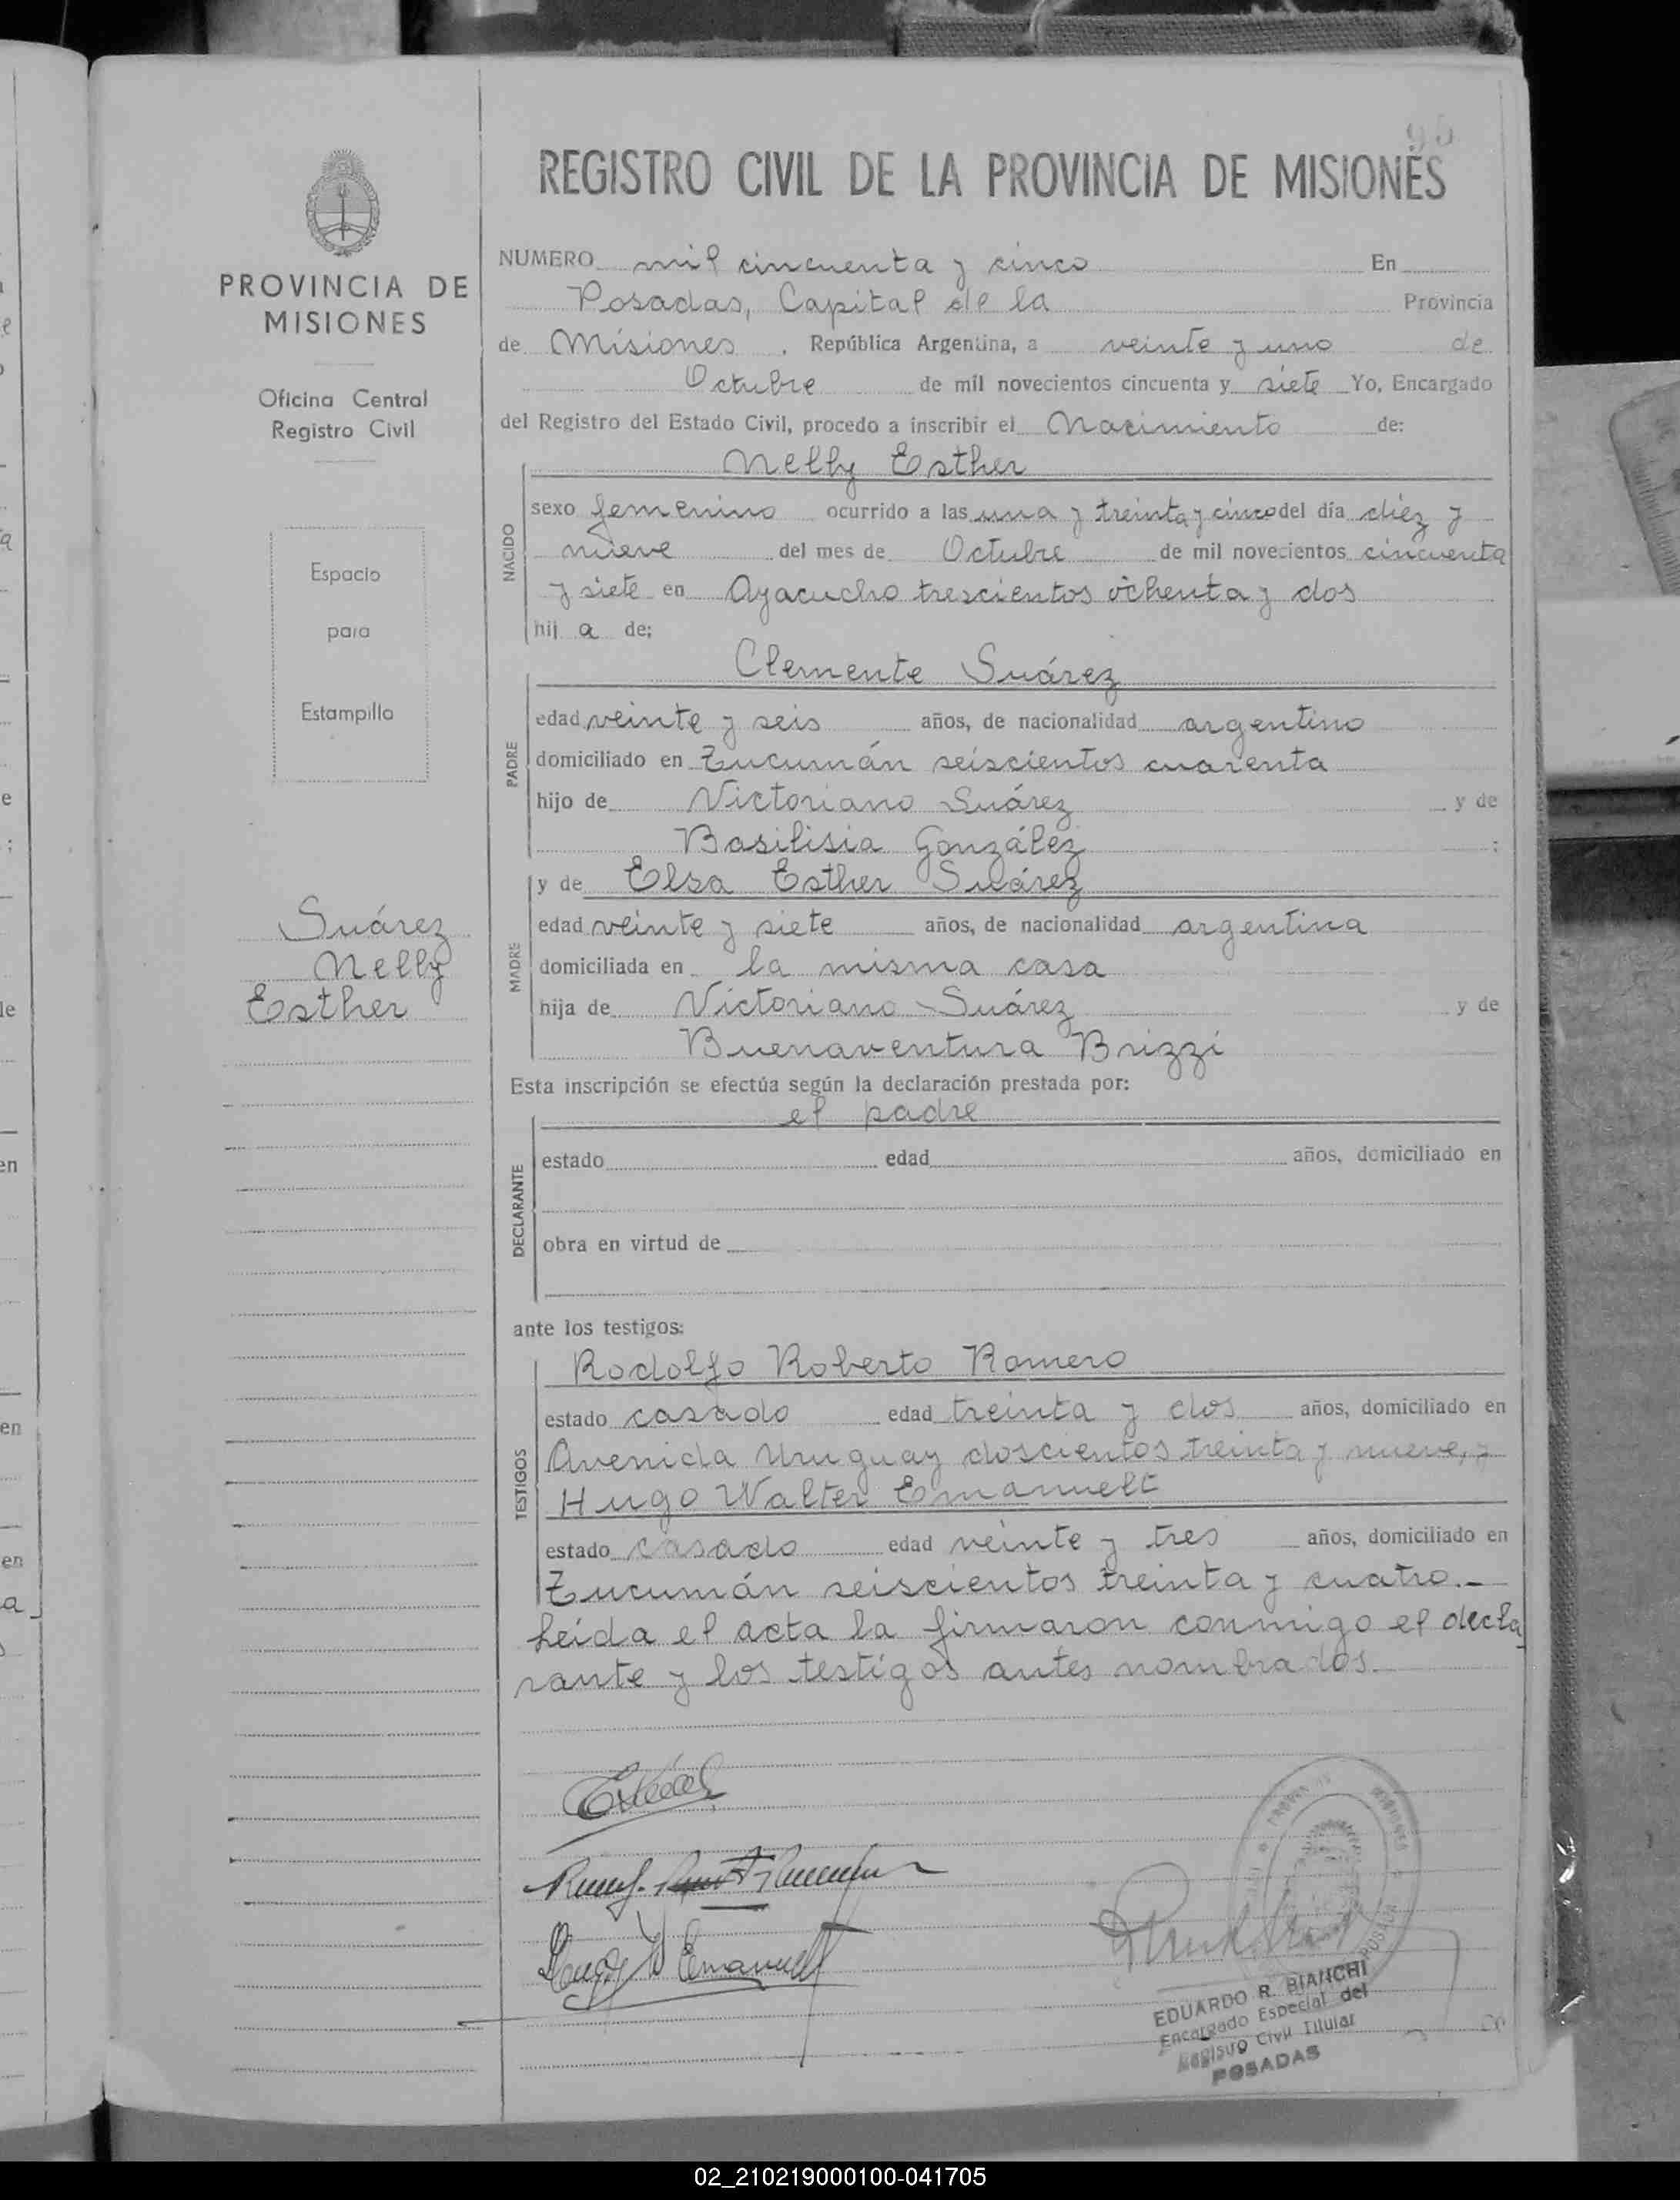 95
REGISTRO CIVIL DE LA PROVINCIA DE MISIONES
PROVINCIA DE
MISIONES
Oficina Central
Registro Civil
Espacio
para
Estampilla
Suárez
Nelly
Esther
NUMERO mil cincuenta y cinco En
Posadas, Capital de la Provincia
de Misiones, República Argentina, a veinte y uno de
Octubre de mil novecientos cincuenta y siete Yo, Encargado
del Registro del Estado Civil, procedo a inscribir el Nacimiento de:
Nelly Esther
NACIDO
sexo femenino ocurrido a las una y treinta y cinco del día diéz y
nueve del mes de Octubre de mil novecientos cincuenta
y siete en Ayacucho trescientos ochenta y dos
hij a de;
Clemente Suárez
PADRE
edad veinte y seis años, de nacionalidad argentino
domiciliado en Tucumán seiscientos cuarenta
hijo de Victoriano Suárez y de
Basilisia González ;
y de Elsa Esther Suárez
MADRE
edad veinte y siete años, de nacionalidad argentina
domiciliada en la misma casa
hija de Victoriano Suárez y de
Buenaventura Brizzi
Esta inscripción se efectúa según la declaración prestada por:
el padre
DECLARANTE
estado edad años, domiciliado en
obra en virtud de
ante los testigos:
Rodolfo Roberto Romero
TESTIGOS
estado casado edad treinta y dos años, domiciliado en
Avenida Uruguay doscientos treinta y nueve, y
Hugo Walter Emanuelt
estado casado edad veinte y tres años, domiciliado en
Tucumán seiscientos treinta y cuatro.-
Leída el acta la firmaron conmigo el decla
rante y los testigos antes nombrados.
Hugo W Emanuelt
MISIONES
POSADAS
EDUARDO R. BIANCHI
Encargado Especial del
Registro Civil Titular
POSADAS
02_210219000100-041705